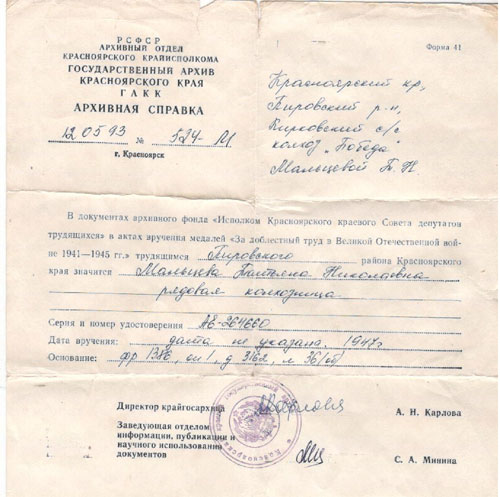 РСФСР
АРХИВНЫЙ ОТДЕЛ
КРАСНОЯРСКОГО КРАЙИСПОЛКОМА
ГОСУДАРСТВЕННЫЙ АРХИВ
КРАСНОЯРСКОГО КРАЯ
ГАКК
АРХИВНАЯ СПРАВКА
12 05 93 № 534 М
г. Красноярск
Форма 41
Красноярский кр,
Пировский р-н,
Кириковский с/с
колхоз „Победа"
Мальцевой Т. Н
В документах архивного фонда «Исполком Красноярского краевого Совета депутатов
трудящихся» в актах вручения медалей «За доблестный труд в Великой Отечественной вой-
не 1941—1945 гг.» трудящимся Пировского района Красноярского
края значится Мальцева Татьяна Николаевна
рядовая колхозница.
Серия и номер удостоверения АЕ-264660
Дата вручения: дата не указана. 1947г
Основание: фр 1386, оп 1, д 3162, л 36(об)
Директор крайгосархива
А. Н. Карлова
Заведующая отделом
информации, публикации и
научного использования
документов
С. А. Минина